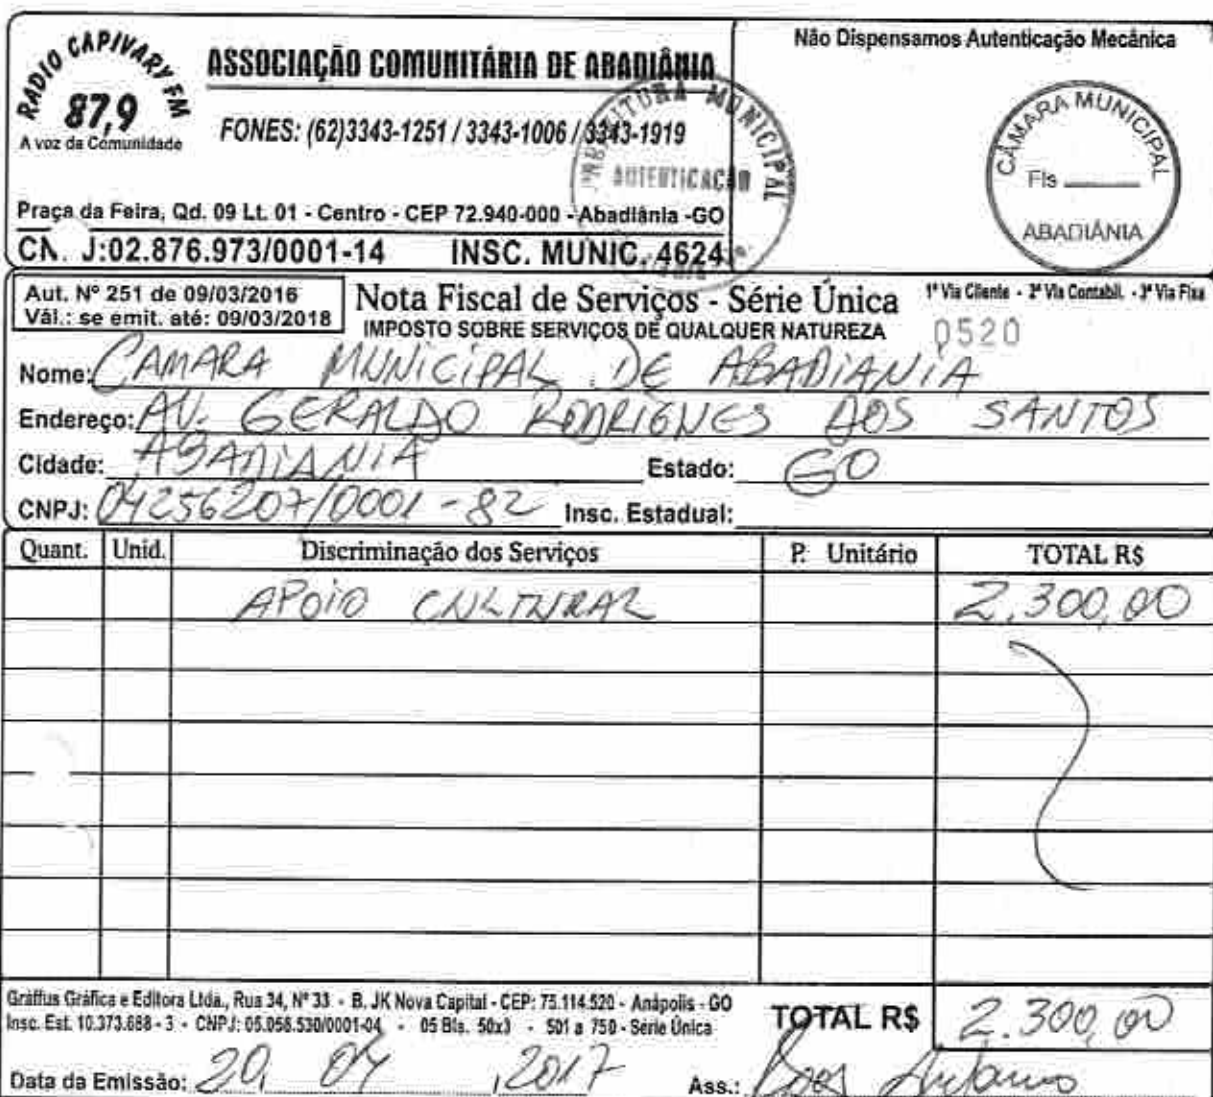 RADIO CAPIVARY FM
87,9
A voz da Comunidade
ASSOCIAÇÃO COMUNITÁRIA DE ABADIÂNIA
FONES: (62)3343-1251 / 3343-1006 / 3343-1919
Praça da Feira, Qd. 09 Lt. 01 - Centro - CEP 72.940-000 - Abadiânia -GO
CN J:02.876.973/0001-14 INSC. MUNIC. 4624
MUNICIPAL
AUTENTICAÇÃO
Não Dispensamos Autenticação Mecânica
CÂMARA MUNICIPAL
Fls
ABADIÂNIA
Aut. Nº 251 de 09/03/2016
Vál.: se emit. até: 09/03/2018
Nota Fiscal de Serviços - Série Única
IMPOSTO SOBRE SERVIÇOS DE QUALQUER NATUREZA
1ª Via Cliente - 2ª Via Contabil. - 3ª Via Fixa
0520
Nome: CAMARA MUNICIPAL DE ABADIANIA
Endereço: AV. GERALDO RODRIGUES DOS SANTOS
Cidade: ABADIANIA Estado: GO
CNPJ: 04256207/0001-82 Insc. Estadual:
Quant. Unid. Discriminação dos Serviços P. Unitário TOTAL R$
APOIO CULTURAL 2.300,00
Gráffus Gráfica e Editora Ltda., Rua 34, Nº 33 - B. JK Nova Capital - CEP: 75.114.520 - Anápolis - GO
Insc. Est. 10.373.688 - 3 - CNPJ: 05.058.530/0001-04 - 05 Bls. 50x3 - 501 a 750 - Série Única
TOTAL R$ 2.300,00
Data da Emissão: 20, 04, 2017 Ass.: Antonio